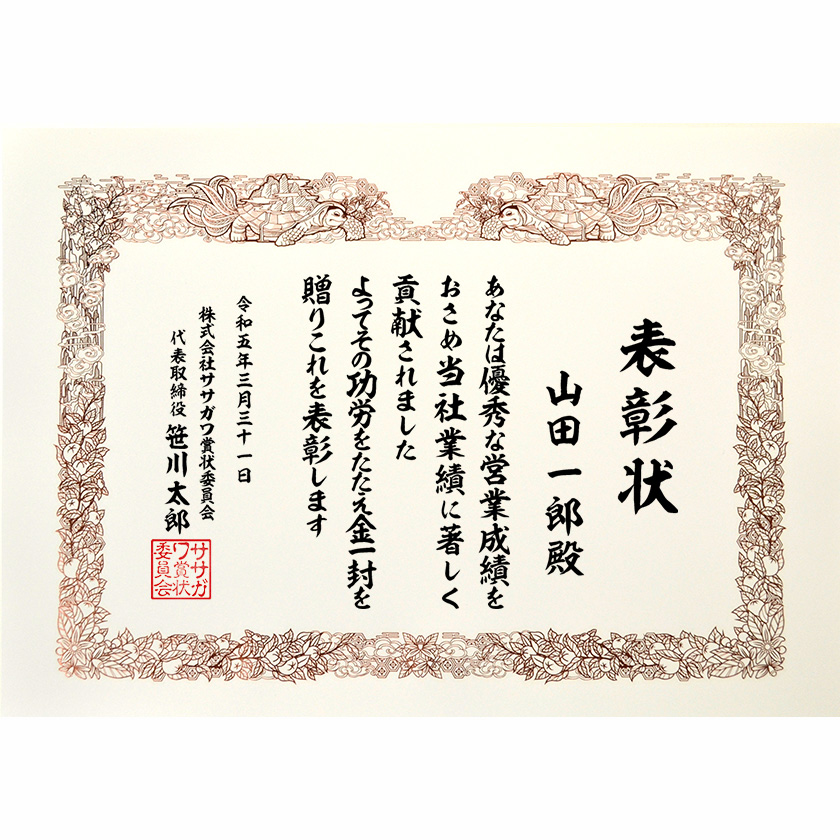 表彰状
山田一郎殿
あなたは優秀な営業成績を
おさめ当社業績に著しく
貢献されました
よってその功労をたたえ金一封を
贈りこれを表彰します
令和五年三月三十一日
株式会社ササガワ賞状委員会
代表取締役 笹川太郎
ササガ
ワ賞状
委員会